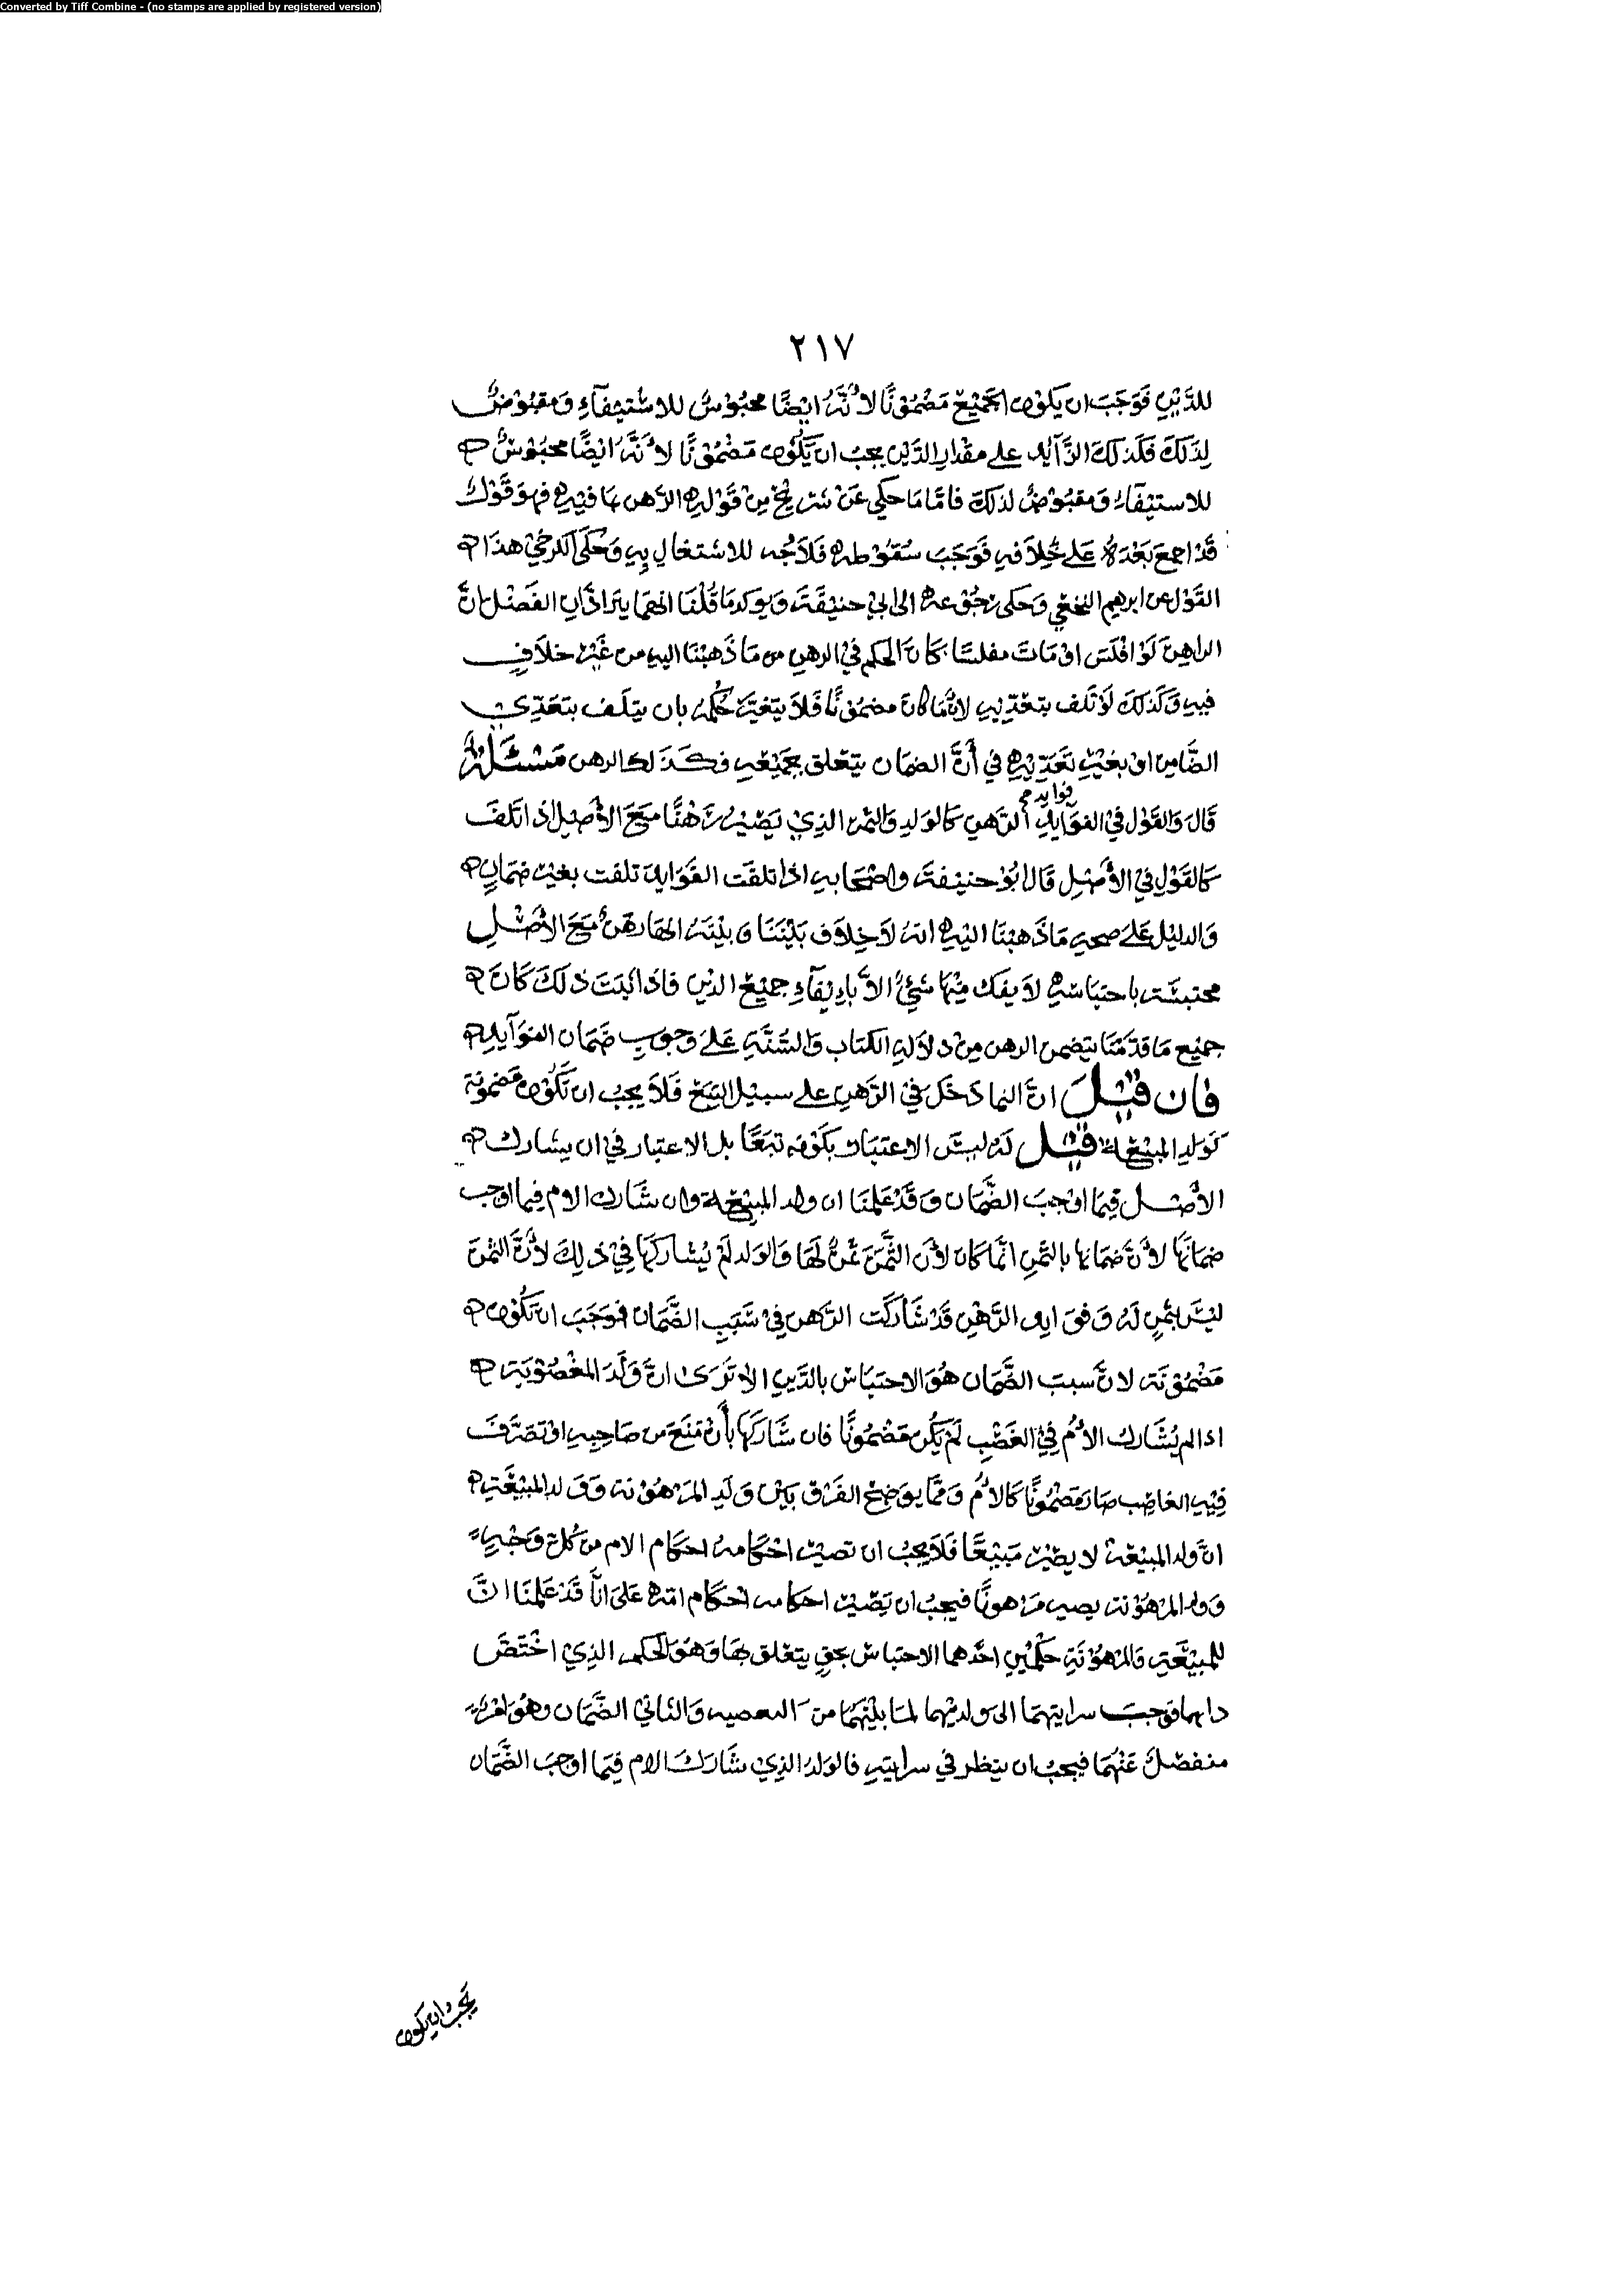 Converted by Tiff Combine - (no stamps are applied by registered version)
٢١٧
للدَّيْنِ فَوَجَبَ ان يكون الجَميْع مَضْمُوْنًا لأنَّهُ ايْضًا محبُوْسٌ للاسْتيْفآءِ وَمقبُوْضٌ
لِذَلكَ فكَذلكَ الزَّآيد على مقْدارِ الدَّيْن يجبُ ان يَّكُوْن مَضْمُوْنًا لأنَّهُ ايْضًا محبُوْسٌ
للاستيْفآءِ وَمقبُوْضٌ لذلكَ فامّا مَا حكي عَنْ شريْح مِنْ قَوْلِهِ الرَّهن بمافيْهِ فهوَ قَوْلٌ
قَدْ اجمعَ بَعْدَهُ عَلى خلاَفهِ فَوَجَبَ سُقوْطه فَلاَ وجْه للاشتغالِ بِهِ وَحكَى الكرخيْ هذَا
القَوْل عن ابرهيم النخعي وَحكى رجُوْعه الى ابيْ حنيْفَةَ وَيوكد مَا قُلْنَا انهمَا يترَادَّانِ الفَضْل انَّ
الراهِنَ لَوْ افْلَسَ اوْ مَاتَ مفلسًا كَانَ الحكم فيْ الرهنِ مَا ذَهبْنَا اليهِ من غَيْرِ خلاَفٍ
فيهِ وَكَذلكَ لَوْ تَلف بتعَدّيهِ لأنَّ مَا كَانَ مضمُوْنًا فَلاَ يَتغَيَّرُ حُكْمهُ بان يتلَف بتعَدِّيْ
الضَّامِن اوْ بغيْرِ تَعَدّيْهِ فيْ أنَّ الضمَان يتعَلق بجَميْعهِ فكَذلكَ الرهن مَسْئَلَةٌ
فوايد
قَالَ وَالقَوْل فيْ الفوَايدِ الرَّهنِ كَالوَلدِ وَالثمر الذيْ يَصيْرُ رَهْنًا معَ الأصْلِ اذا تلفَ
كَالقَوْلِ فيْ الأصْلِ قَال ابُوْ حنيْفةَ وَاصْحَابهِ اذا تلفَت الفَوَايد تلفت بغيْر ضمَانٍ
وَالدليْل عَلى صحهِ مَا ذَهبْنَا اليْهِ انهُ لاَ خِلاَف بَيْنَنَا وَبيْنَهُ انهَا رهْنٌ معَ الأصْلِ
محتبسَة باحتبَاسهِ لاَ يفَك مِنْهَا شَيْءٌ الاَّ بايْفآءِ جميْع الدّيْنِ فاذا ثبَتَ ذلكَ كَانَ
جميْع مَا قدّمْنَا يتضمن الرهن مِنْ دلاَلهِ الكتاب وَالسُّنَّةِ عَلى وَجوْبِ ضَمَان الفوَآيدِ
فان قيْلَ انَّ النما دَخَلَ فيْ الرَّهنِ على سبيْل التبع فَلاَ يجبُ ان تَّكُوْن مَضمُونة
كَوَلدِ المبيْعَة قيْل لَهُ ليسَ الاعتبَار بكَوْنه تبَعًا بل الاعتبَار فيْ ان يشَارك
الأصْل فيْمَا اوْجبَ الضَّمَان وَقَدْ عَلمْنَا ان ولد المبيْعَة وان شَارك الام فيْمَا اوْجب
ضمَانَهَا لأنَّ ضمَانهَا بالثَّمنِ انَّمَا كَان لأنَّ الثَّمنَ ثَمنٌ لَهَا وَالوَلد لَمْ يُشَاركهَا فيْ ذلِكَ لأنَّ الثمنَ
ليْسَ بثمنٍ لَهُ وَفوَايد الرَّهْنِ قَدْ شَاركَت الرَّهن فيْ سَبَبِ الضَّمَان فوَجَبَ ان تَكُوْن
مَضْمُوْنَة لانَّ سببَ الضَّمَان هُوَ الاحتبَاسُ بالدَّينِ الا تَرَى انَّ وَلَدَ المغْصُوْبَةِ
اذا لم يُشَارك الأمّ فيْ الغَصْبِ لَمْ يَكُن مَضْمُوْنًا فان شَاركَهَا بأَنْ مَنَعَ من صَاحِبهِ اوْ تصَرَّفَ
فيْهِ الغَاصِب صَار مَضْمُوْنًا كَالأمّ وَممَّا يوَضح الفَرْق بَيْن وَلَدِ المَرْهوْنة وَوَلد المبيْعَةِ
انَّ ولد المبيْعَة لا يصيْرُ مَبيْعًا فَلاَ يجبُ ان تصيْر احْكَامهُ احكام الام من كُل وَجْهٍ
وَولد المرْهوْنة يصير مَرْهونًا فيجبُ ان يَصيْر احكَامه احْكَام امّه عَلى انَّا قَدْ عَلمْنَا انَّ
للمبيْعَةِ وَالمرْهوْنَةِ حكْمَيْنِ احدهما الاحتباسُ بحقٍ يتعَلق بهَا وَهوَ الحكم الذيْ اخْتَصَّ
فوَجبَ سرايتهمَا الى وَلديْهما لمَا بيْنَهُمَا من وَالثانيْ الضَّمَان وهُوَ امْرٌ
منفصْلٌ عَنْهُمَا فيجبُ ان ينظر فيْ سرايتهِ فالوَلد الذيْ شَاركَ الام فيْمَا اوْجبَ الضَّمَان
يجب ان يكون